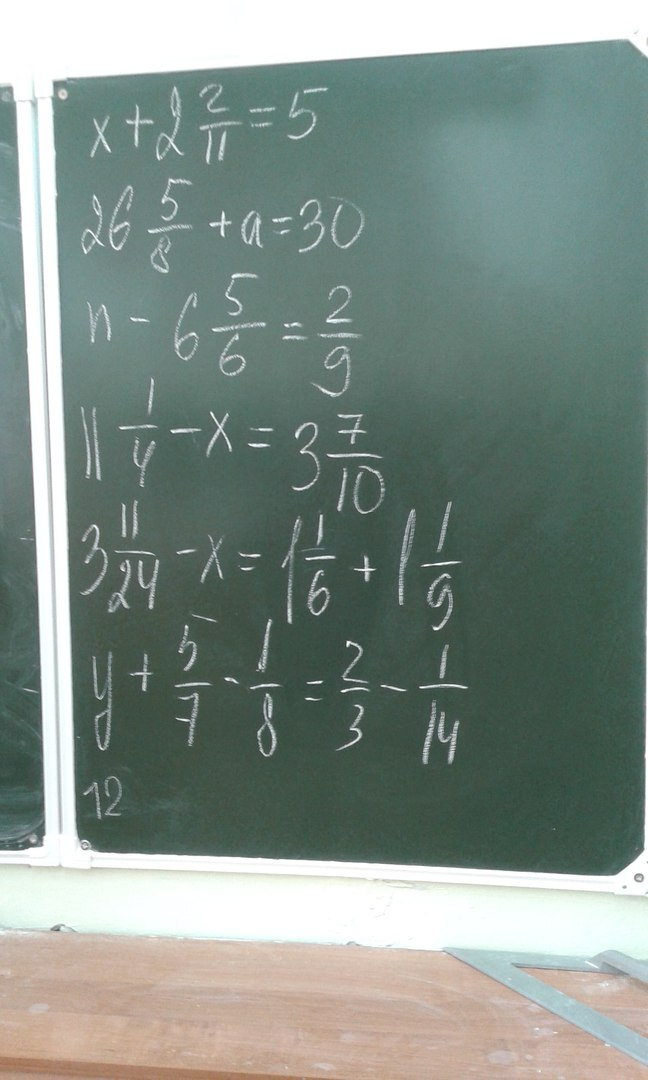 x + 2 2/11 = 5
26 5/8 + a = 30
n - 6 5/6 = 2/9
11 1/4 - x = 3 7/10
3 11/24 - x = 1 1/6 + 1 1/9
y + 5/7 - 1/8 = 2/3 - 1/14
12